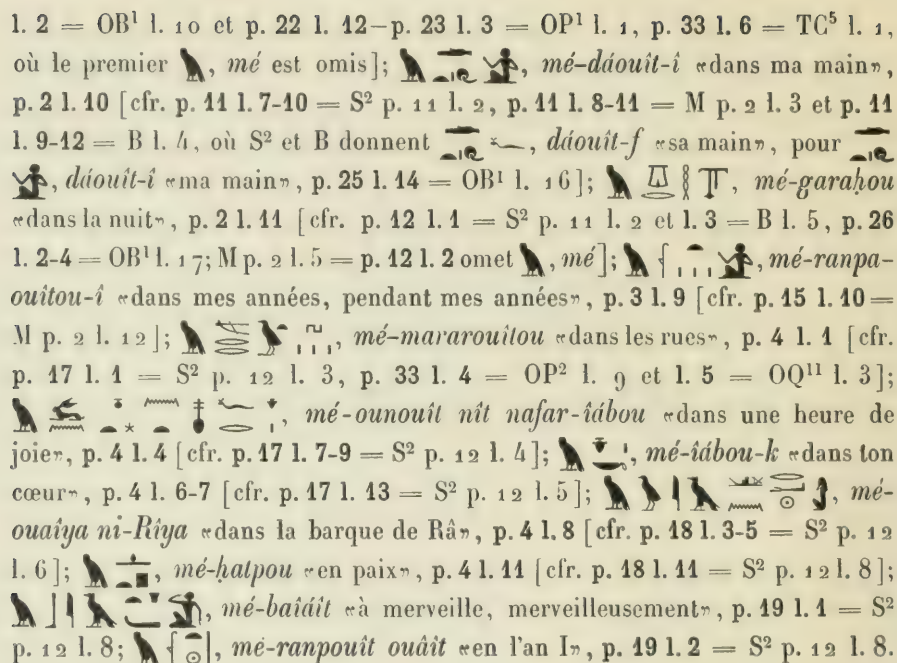 l. 2 = OB¹ l. 10 et p. 22 l. 12–p. 23 l. 3 = OP¹ l. 1, p. 33 l. 6 = TC⁵ l. 1,
où le premier 𓅓, mé est omis]; 𓅓, mé-dáouît-î «dans ma main»,
p. 2 l. 10 [cfr. p. 11 l. 7-10 = S² p. 11 l. 2, p. 11 l. 8-11 = M p. 2 l. 3 et p. 11
l. 9-12 = B l. 4, où S² et B donnent dáouît-f «sa main», pour
, dáouît-î «ma main», p. 25 l. 14 = OB¹ l. 16]; 𓅓, mé-garaḥou
«dans la nuit», p. 2 l. 11 [cfr. p. 12 l. 1 = S² p. 11 l. 2 et l. 3 = B l. 5, p. 26
l. 2-4 = OB¹ l. 17; M p. 2 l. 5 = p. 12 l. 2 omet 𓅓, mé]; 𓅓, mé-ranpa-
ouîtou-î «dans mes années, pendant mes années», p. 3 l. 9 [cfr. p. 15 l. 10 =
M p. 2 l. 12]; 𓅓, mé-mararouîtou «dans les rues», p. 4 l. 1 [cfr.
p. 17 l. 1 = S² p. 12 l. 3, p. 33 l. 4 = OP² l. 9 et l. 5 = OQ¹¹ l. 3];
𓅓, mé-ounouît nît nafar-îábou «dans une heure de
joie», p. 4 l. 4 [cfr. p. 17 l. 7-9 = S² p. 12 l. 4]; 𓅓, mé-îábou-k «dans ton
cœur», p. 4 l. 6-7 [cfr. p. 17 l. 13 = S² p. 12 l. 5]; 𓅓, mé-
ouaîya ni-Rîya «dans la barque de Râ», p. 4 l. 8 [cfr. p. 18 l. 3-5 = S² p. 12
l. 6]; 𓅓, mé-ḥatpou «en paix», p. 4 l. 11 [cfr. p. 18 l. 11 = S² p. 12 l. 8];
𓅓, mé-baîáît «à merveille, merveilleusement», p. 19 l. 1 = S²
p. 12 l. 8; 𓅓, mé-ranpouît ouâît «en l'an I», p. 19 l. 2 = S² p. 12 l. 8.